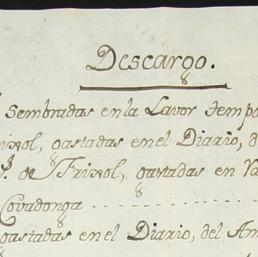 Descargo.
sembradas en la Lavor tempo
Frixol, gastadas en el Diario, d
de Frixol, gastadas en Va
Covadonga
gastadas en el Diario, del Am